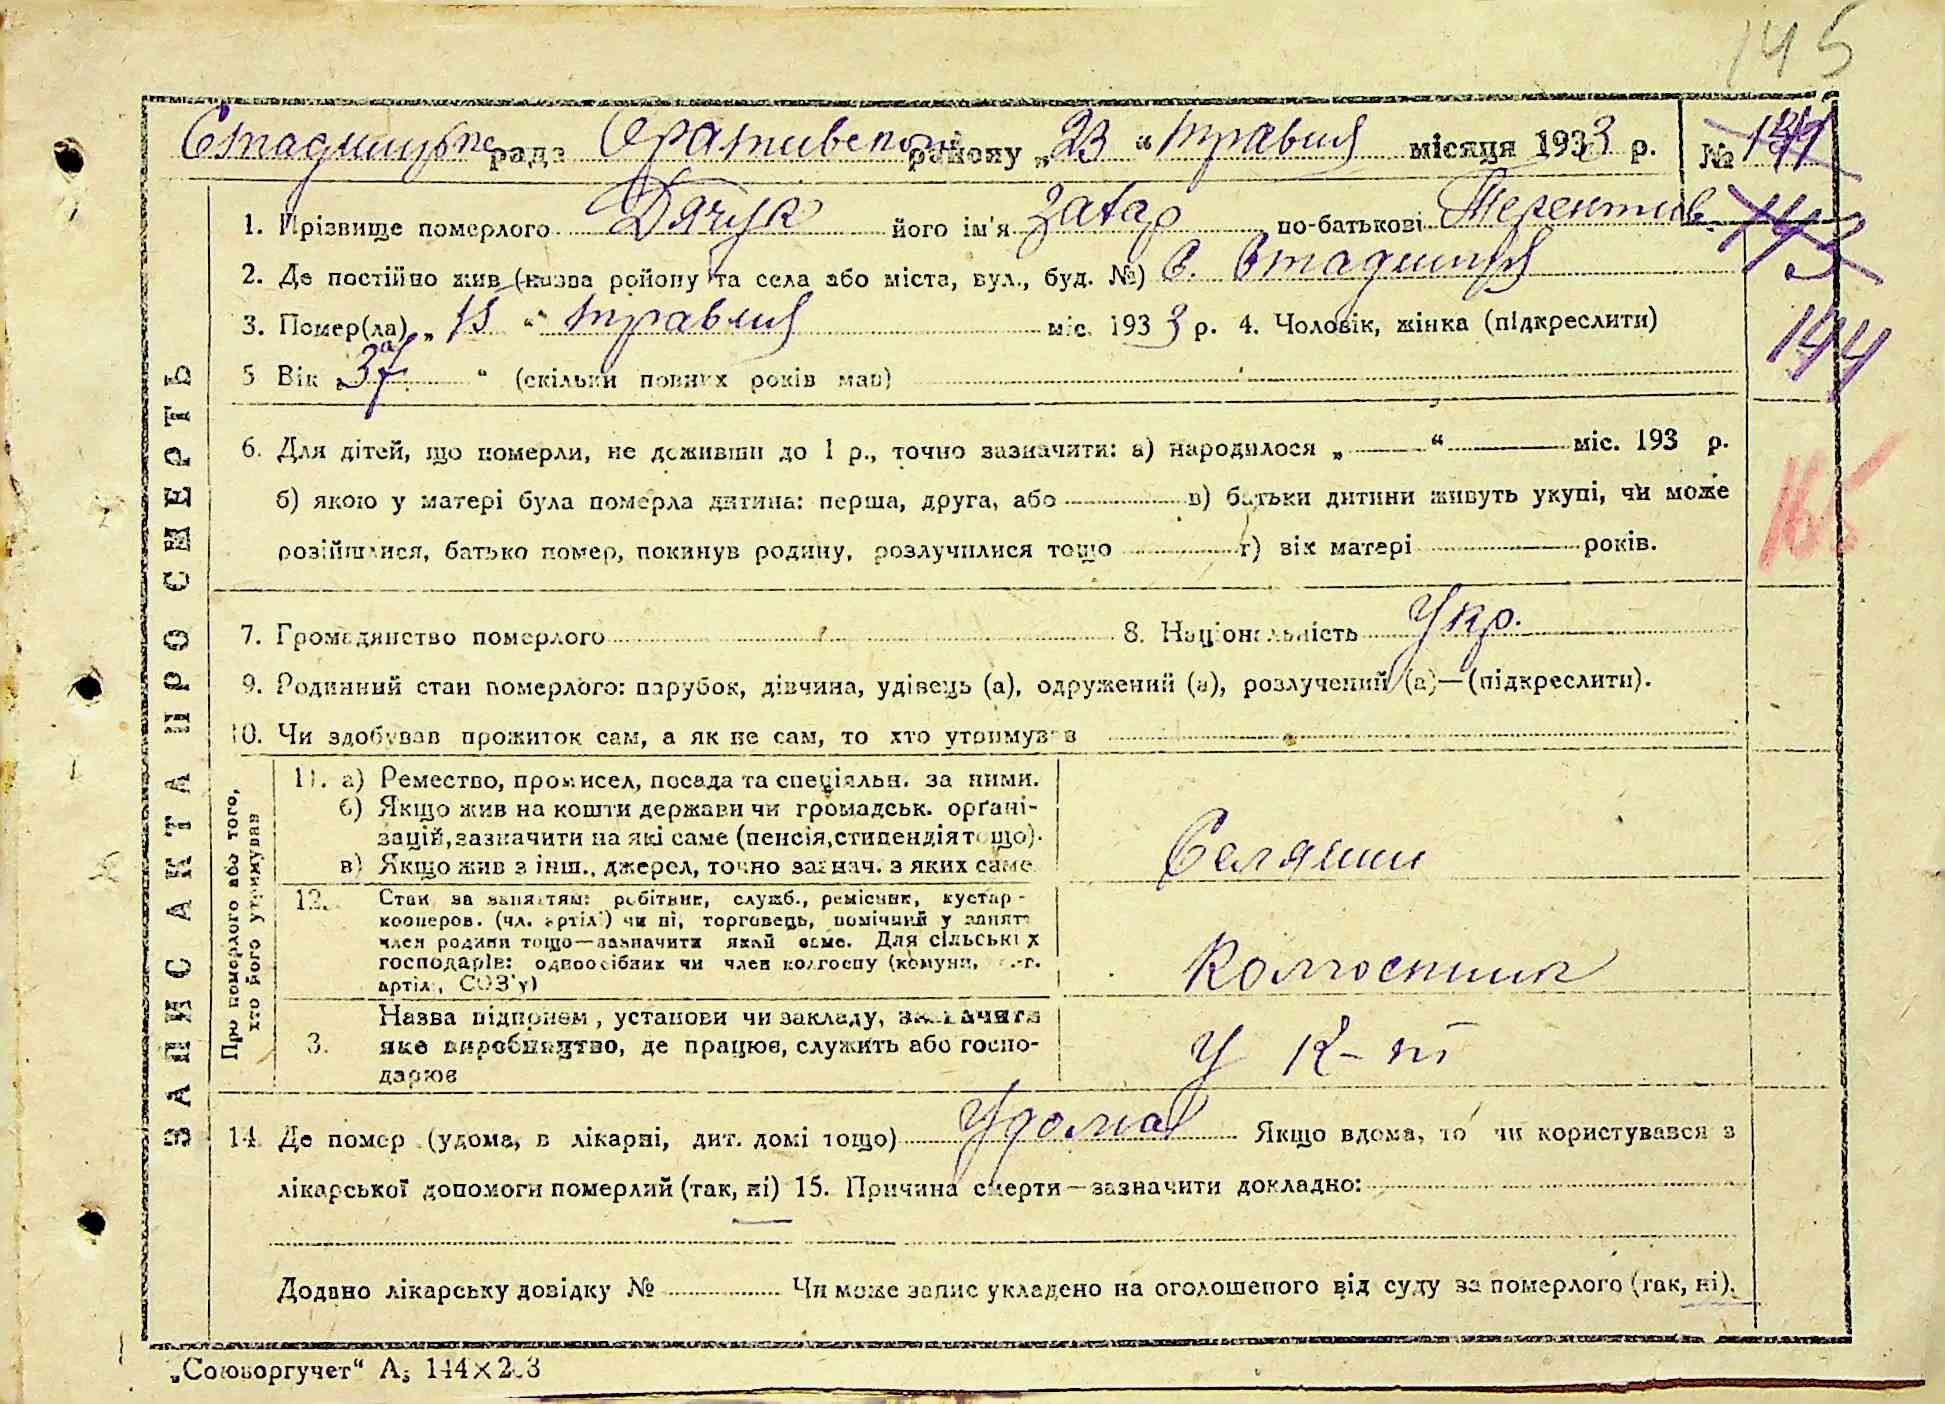 145
Стадницька рада Оратівського району „23“ травня місяця 1933 р. № 144
1. Прізвище померлого Дячук його ім'я Захар по-батькові Терентів. 143
2. Де постійно жив (назва району та села або міста, вул., буд. №) с. Стадниця
3. Помер(ла) „15“ травня міс. 1933 р. 4. Чоловік, жінка (підкреслити) 144
5 Вік „37“ (скільки повних років мав)
6. Для дітей, що померли, не доживши до 1 р., точно зазначити: а) народилося „ “ міс. 193 р.
б) якою у матері була померла дитина: перша, друга, або в) батьки дитини живуть укупі, чи може 165
розійшлися, батько помер, покинув родину, розлучилися тощо г) вік матері років.
7. Громадянство померлого 8. Національність Укр.
9. Родинний стан померлого: парубок, дівчина, удівець (а), одружений (а), розлучений (а)—(підкреслити).
10. Чи здобував прожиток сам, а як не сам, то хто утримував
ЗАПИС АКТА ПРО СМЕРТЬ
Про померлого або того,
хто його утримував
11. а) Ремество, промисел, посада та спеціяльн. за ними.
б) Якщо жив на кошти держави чи громадськ. орґані-
зацій, зазначити на які саме (пенсія, стипендія тощо).
в) Якщо жив з інш., джерел, точно зазнач. з яких саме
Селянин
12. Стан за заняттям: робітник, служб., ремісник, кустар-
кооперов. (чл. артілі) чи ні, торговець, помічний у занятт
член родини тощо—зазначити який саме. Для сільських
господарів: одноосібник чи член колгоспу (комуни, с.-г.
артілі, СОЗ'у)
Колгоспник
3. Назва підприєм., установи чи закладу, зазначити
яке виробництво, де працює, служить або госпо-
дарює
У к-пі
14. Де помер (удома, в лікарні, дит. домі тощо) Удома Якщо вдома, то чи користувався з
лікарської допомоги померлий (так, ні) 15. Причина смерти—зазначити докладно:
Додано лікарську довідку № Чи може запис укладено на оголошеного від суду за померлого (так, ні).
„Союзоргучет“ А5 144×203